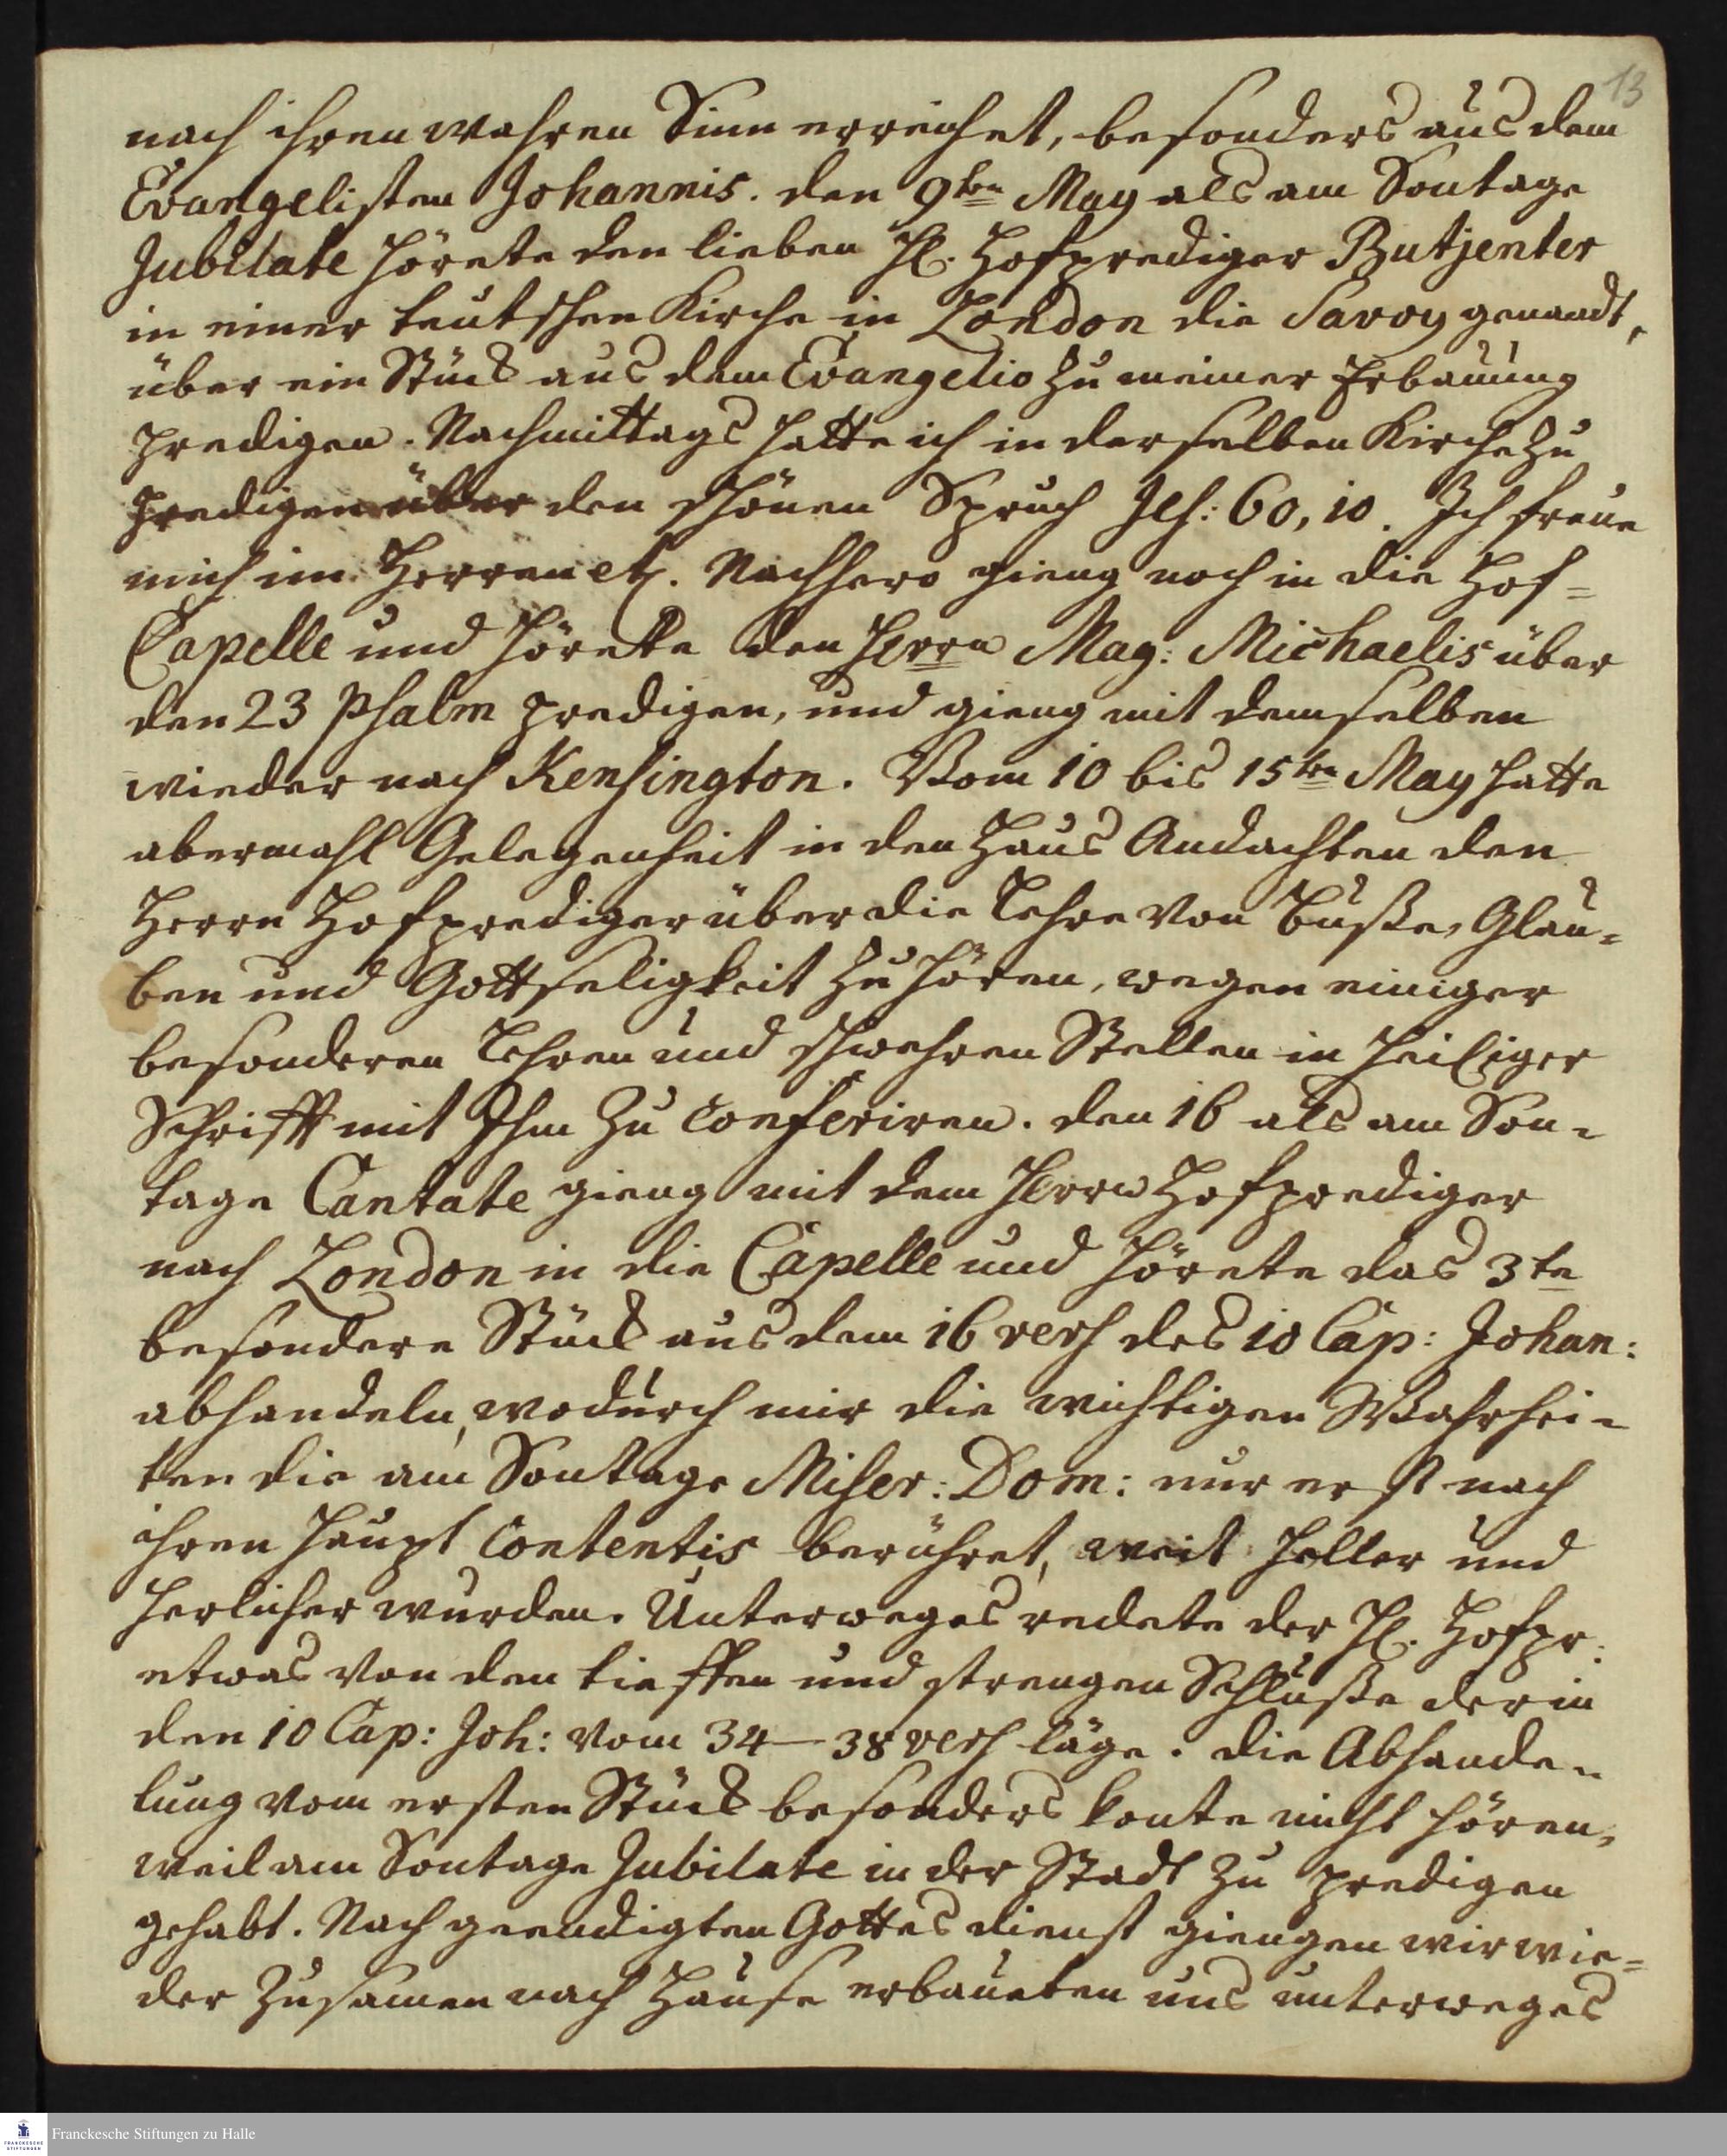 13
nach ihren wahren Sinn erreichet, besonders aus dem
Evangelisten Johannis. den 9ten May als am Sontage
Jubilate hörete den lieben H. Hofprediger Butjenter
in einer teutschen Kirche in London die Savoy genandt,
über ein Stück aus dem Evangelio zu meiner Erbauung
predigen. Nachmittags hatte ich in derselben Kirche zu
predigen über den schönen Spruch Jes: 60, 10. Ich freue
mich im Herren etc. Nachhero gieng noch in die Hof=
Capelle und hörete den Herrn Mag: Michaelis über
den 23 Psalm predigen, und gieng mit demselben
wieder nach Kensington. Vom 10 bis 15ten May hatte
abermahl Gelegenheit in den Haus Andachten den
Herrn Hofprediger über die Lehre von Buße, Glau=
ben und Gottseligkeit zu hören, wegen einiger
besonderen Lehren und schwehren Stellen in heiliger
Schrifft mit Ihm zu conferiren. den 16 als am Son=
tage Cantate gieng mit dem Herrn Hofprediger
nach London in die Capelle und hörete das 3te
besondere Stück aus dem 16 vers des 10 Cap: Johan:
abhandeln, wodurch mir die wichtigen Wahrhei=
ten die am Sontage Miser: Dom: nur erst nach
ihren Haupt Contentis berühret, weit heller und
herlicher wurden. Unterweges redete der H. Hofpr:
etwas von den tieffen und strengen Schluße der in
den 10 Cap: Joh: vom 34–38 vers läge. die Abhande=
lung vom ersten Stück besonders konte nicht hören,
weil am Sontage Jubilate in der Stadt zu predigen
gehabt. Nach geendigten Gottesdienst giengen wir wie=
der zusamen nach Hause erbaueten uns unterweges
FRANCKESCHE STIFTUNGEN
Franckesche Stiftungen zu Halle